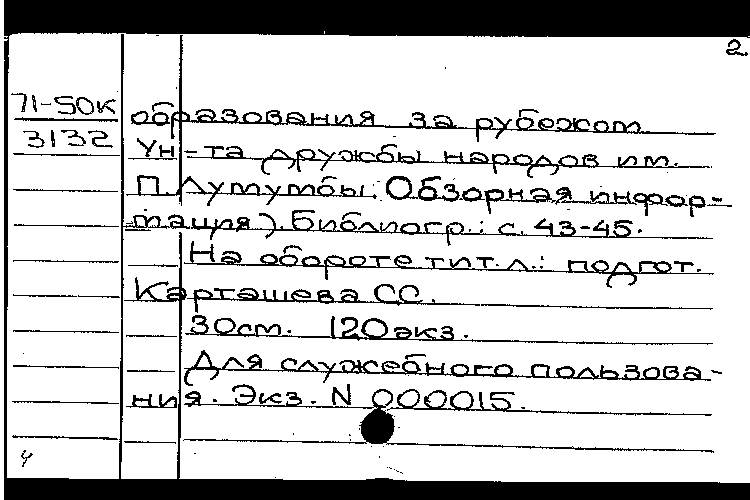 2.
71-50К
3132
образования за рубежом.
Ун-та дружбы народов им.
П. Лумумбы. Обзорная инфор-
мация). Библиогр.: с. 43-45.
На обороте тит. л.: подгот.
Карташева СС.
30см. 120экз.
Для служебного пользова-
ния. Экз. N 000015.